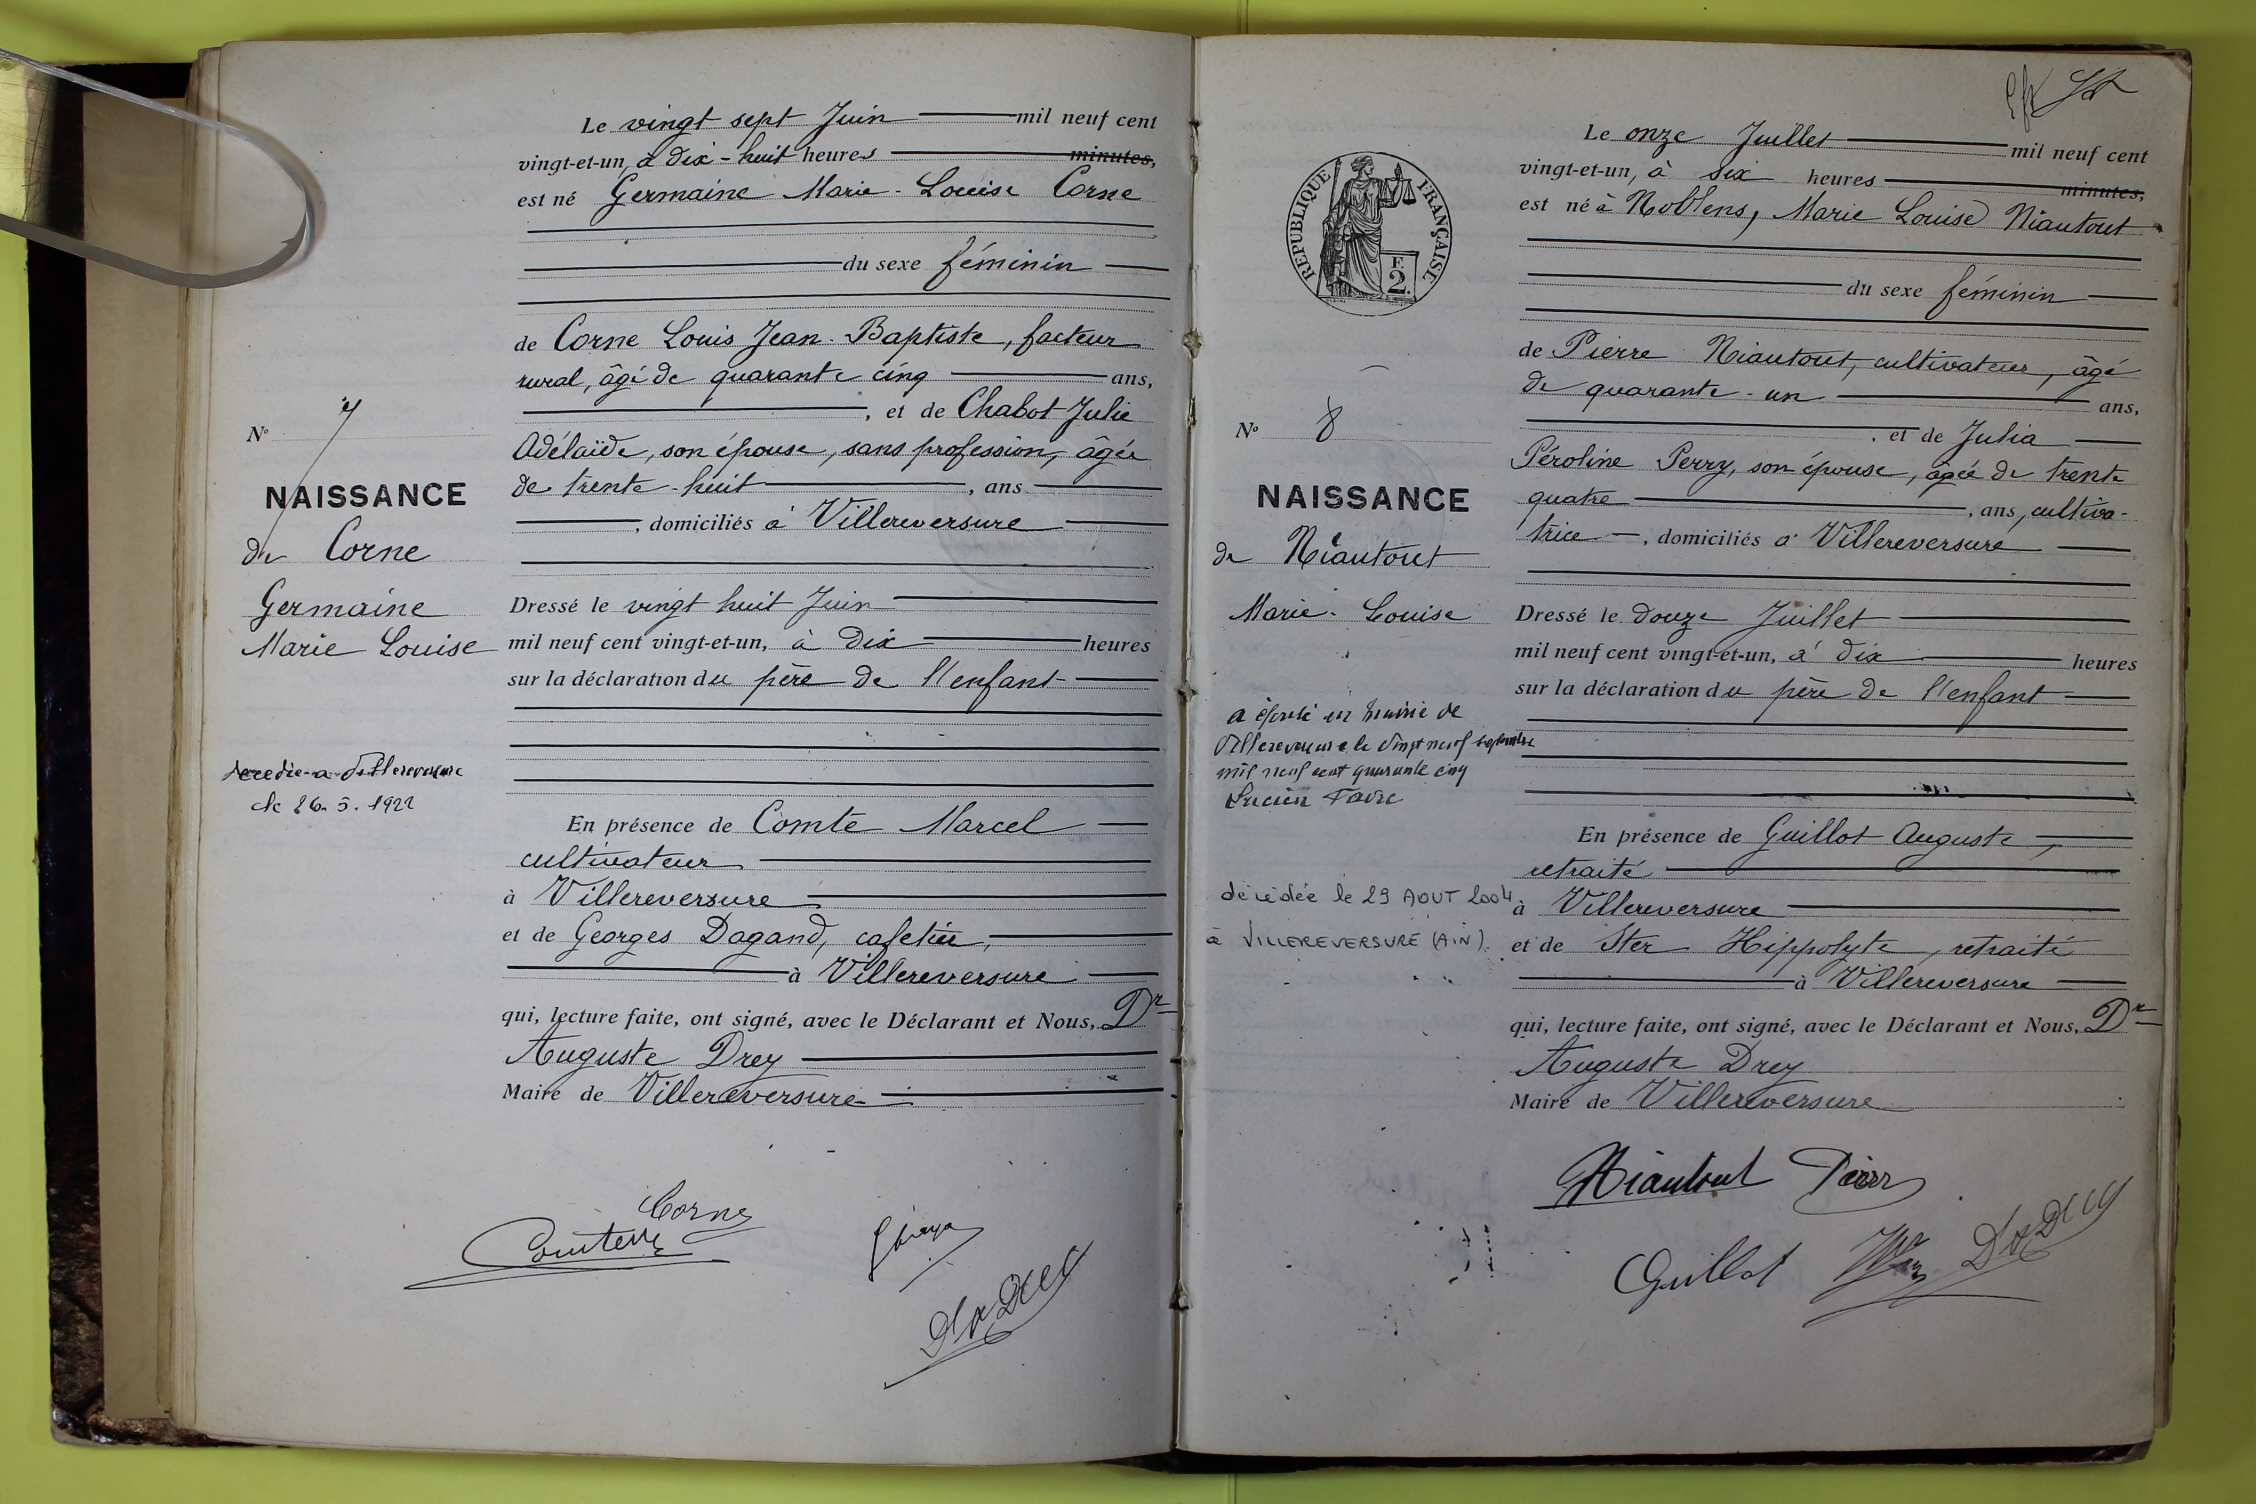 Le vingt sept Juin mil neuf cent
vingt-et-un, à dix-huit heures minutes,
est né Germaine Marie-Louise Corne
du sexe féminin
de Corne Louis Jean-Baptiste, facteur
rural, âgé de quarante cinq ans,
, et de Chabot Julie
Adélaïde, son épouse, sans profession, âgée
de trente-huit , ans
, domiciliés à Villereversure
Dressé le vingt huit Juin
mil neuf cent vingt-et-un, à dix heures
sur la déclaration du père de l'enfant
En présence de Comte Marcel
cultivateur
à Villereversure
et de Georges Dagand, cafetier,
à Villereversure
qui, lecture faite, ont signé, avec le Déclarant et Nous, Dr
Auguste Drey
Maire de Villereversure
Corne
N° 7
NAISSANCE
de Corne
Germaine
Marie Louise
decedée a Villereversure
le 26.5.1922
Le onze Juillet mil neuf cent
vingt-et-un, à six heures minutes,
est né à Noblens, Marie Louise Niautout
du sexe féminin
de Pierre Niautout, cultivateur, âgé
de quarante-un ans,
, et de Julia
Péroline Perry, son épouse, âgée de trente
quatre , ans, cultiva-
trice , domiciliés à Villereversure
Dressé le douze Juillet
mil neuf cent vingt-et-un, à dix heures
sur la déclaration du père de l'enfant
En présence de Guillot Auguste,
retraité
à Villereversure
et de Ster Hippolyte, retraité
à Villereversure
qui, lecture faite, ont signé, avec le Déclarant et Nous, Dr
Auguste Drey
Maire de Villereversure
Niautout Pierre
Guillot
RÉPUBLIQUE FRANÇAISE
F.
2.
N° 8
NAISSANCE
de Niautout
Marie-Louise
a épousé en mairie de
Villereversure le vingt neuf septembre
mil neuf cent quarante cinq
Lucien Favre
décédée le 29 AOUT 2004
à VILLEREVERSURE (AIN).